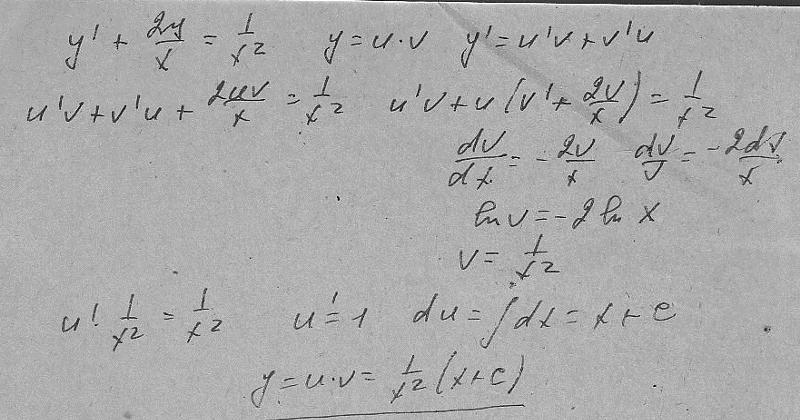 y' + 2y/x = 1/x² y = u·v y' = u'v + v'u
u'v + v'u + 2uv/x = 1/x² u'v + u(v' + 2v/x) = 1/x²
dv/dx = -2v/x dv/v = -2dx/x
ln v = -2 ln x
v = 1/x²
u' 1/x² = 1/x² u' = 1 du = ∫dx = x + c
y = u·v = 1/x² (x+c)